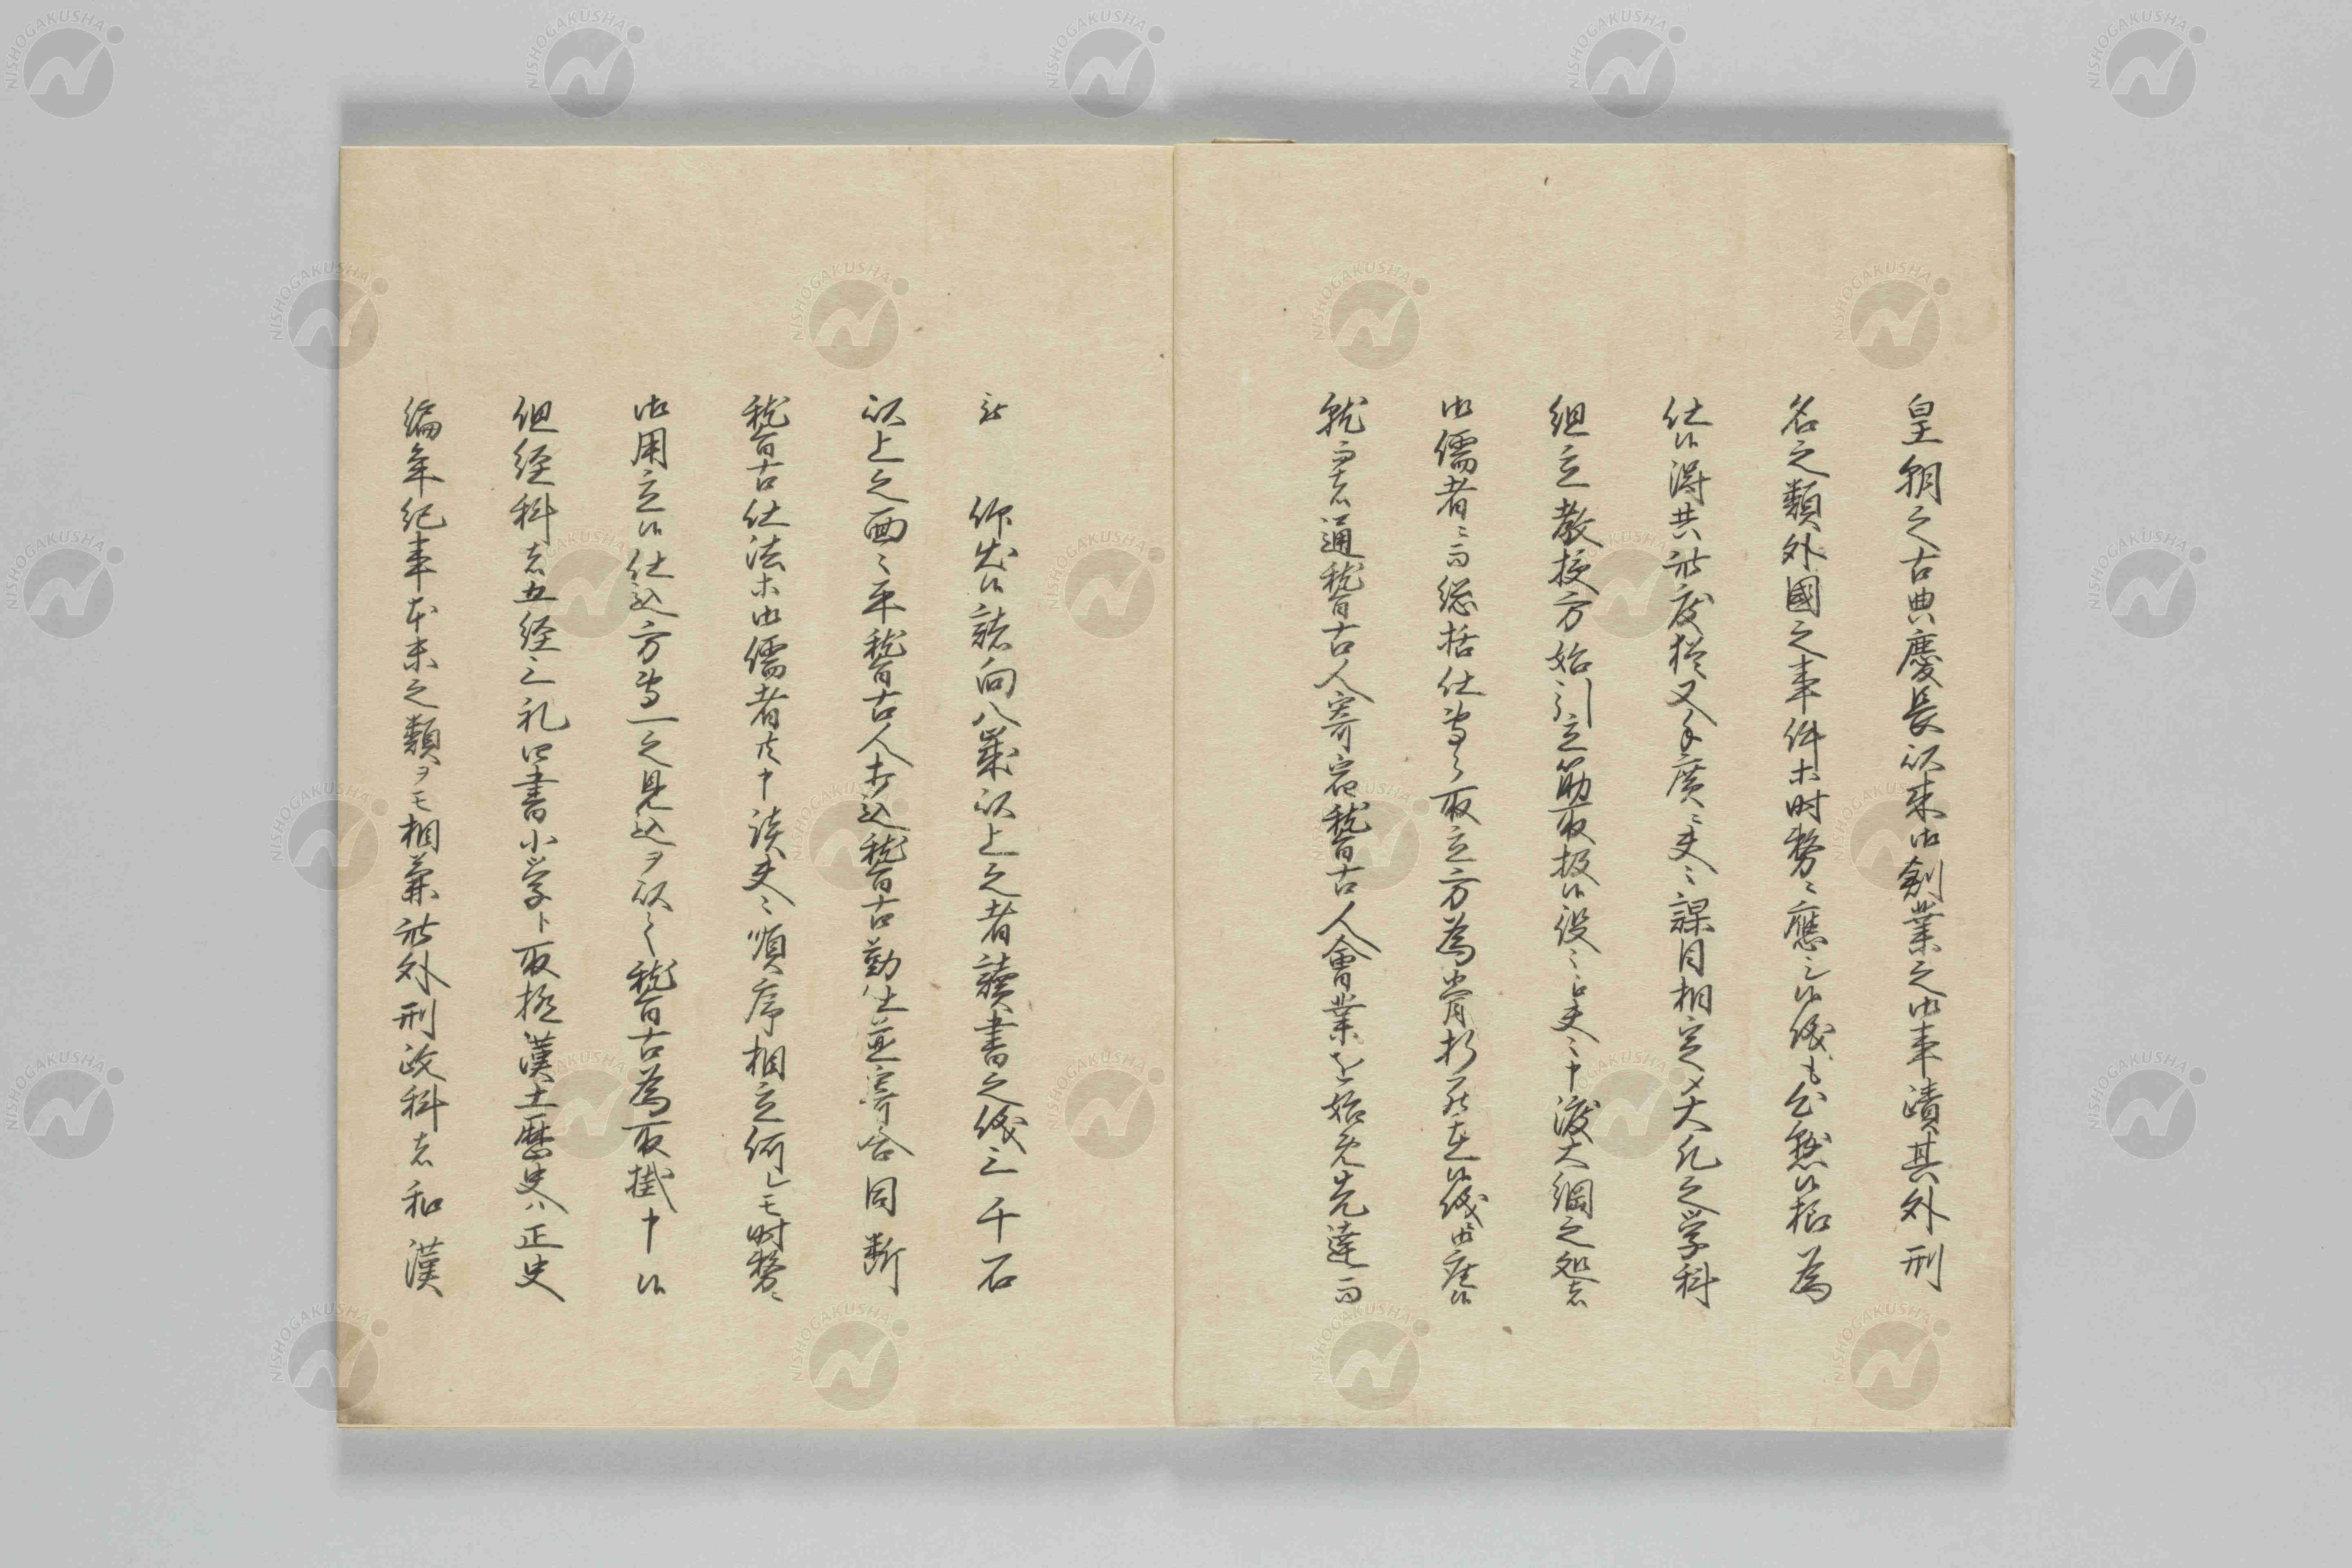 皇朝之古典慶長以来御創業之御事蹟其外刑
名之類外國之事件等時勢ニ應し候儀も公然候様為
仕候得共此度猶又手廣ニ夫々課目相定メ大凡之学科
組立教授方始引立筋取扱候役々江夫々申渡大綱之処者
御儒者ニ而総括仕専ら取立方為骨折罷在候儀御座候
就而者通稽古人寄宿稽古人會業を始免先達而
被　仰出候諸向八歳以上之者讀書之儀三千石
以上之面々平稽古人打込稽古勤仕並寄合同断
稽古仕法等御儒者共申談夫々順序相立何レモ時勢ニ
御用立候仕込方専一之見込ヲ以て稽古為取掛申候
但経科者五経三礼四書小学ト取極漢土歴史ハ正史
編年紀事本末之類ヲモ相兼此外刑政科者和漢
NISHOGAKUSHA